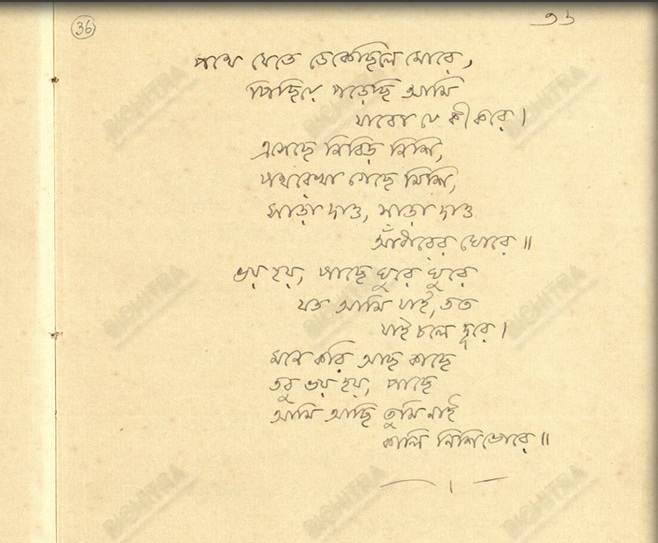 36
৩৬
পথে যেতে ডেকেছিলে মোরে,
পিছিয়ে পড়েছি আমি
যাবো যে কী করে।
এসেছে নিবিড় নিশি,
পথরেখা গেছে মিশি,
সাড়া দাও, সাড়া দাও
আঁধারের ঘোরে॥
ভয় হয়, পাছে ঘুরে ঘুরে
যত আমি যাই, তত
যাই চলে দূরে।
মনে করি আছ কাছে
তবু ভয় হয়, পাছে
আমি আছি তুমি নাই
কালি নিশিভোরে॥
BICHITRA
BICHITRA
BICHITRA
BICHITRA
BICHITRA
BICHITRA
BICHITRA
BICHITRA
BICHITRA